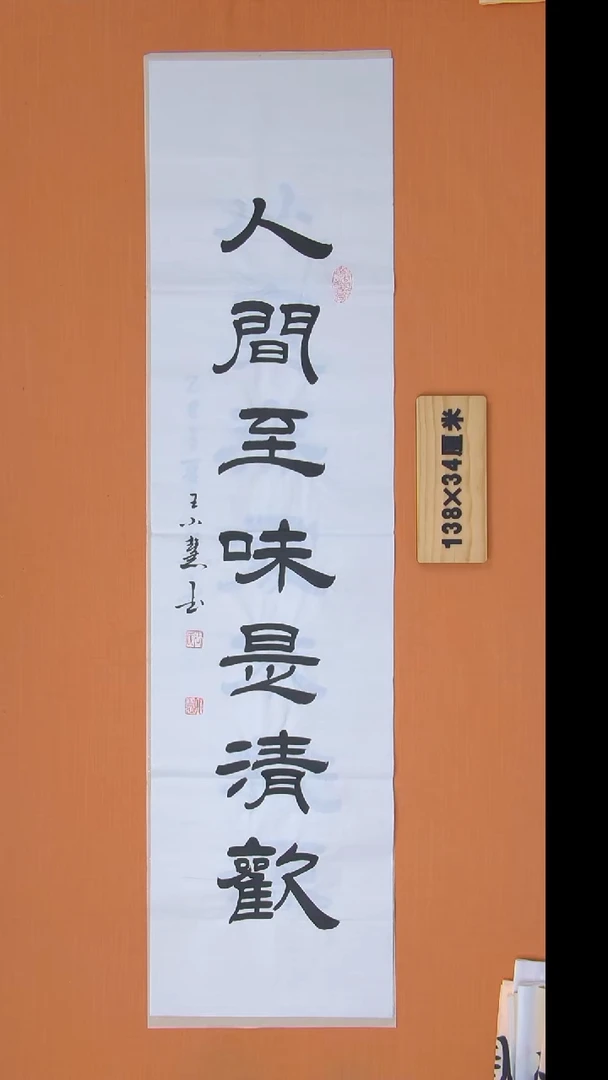 人間至味是清歡
王小慧书
138×34厘米